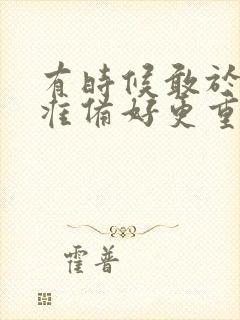 有時候敢於
准備好更重
霍普